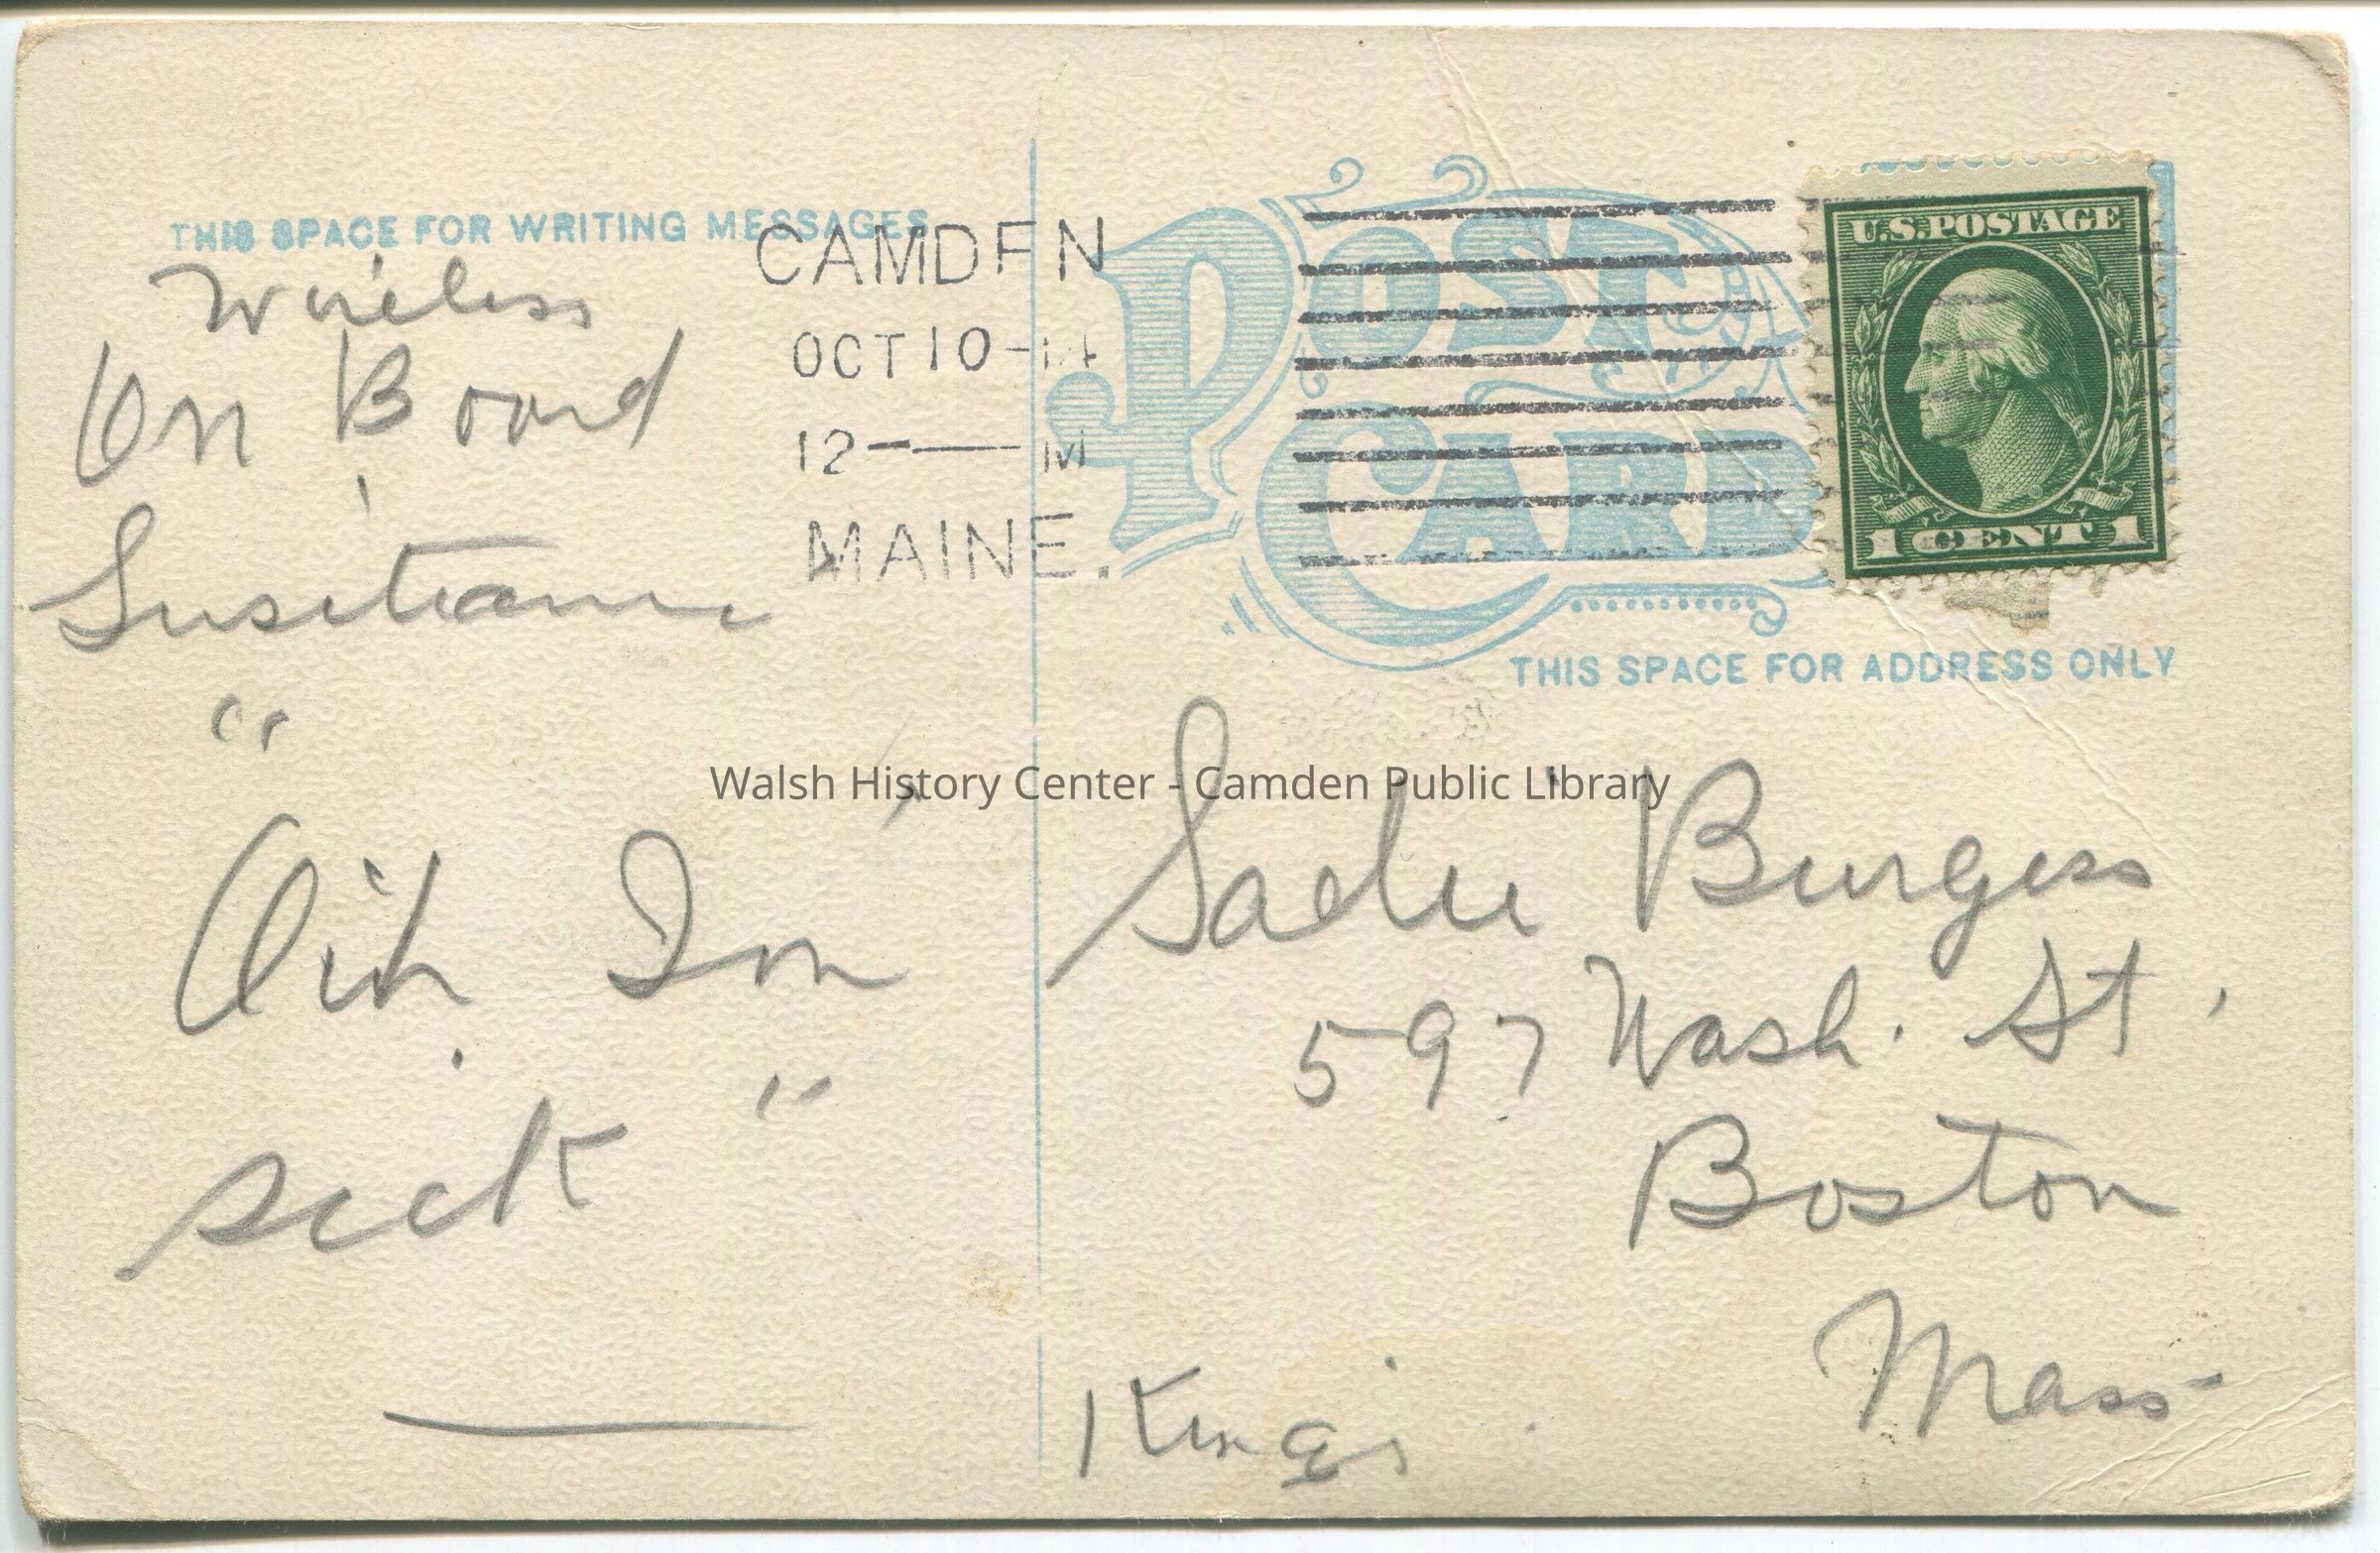 THIS SPACE FOR WRITING MESSAGES
Wireless
On Board
Lusitania
"
Oih Im
sick "
CAMDEN
OCT 10-14
12-M
MAINE.
POST CARD
U.S. POSTAGE
1 CENT 1
THIS SPACE FOR ADDRESS ONLY
Walsh History Center - Camden Public Library
Sadie Burgess
597 Wash. St,
Boston
Mass-